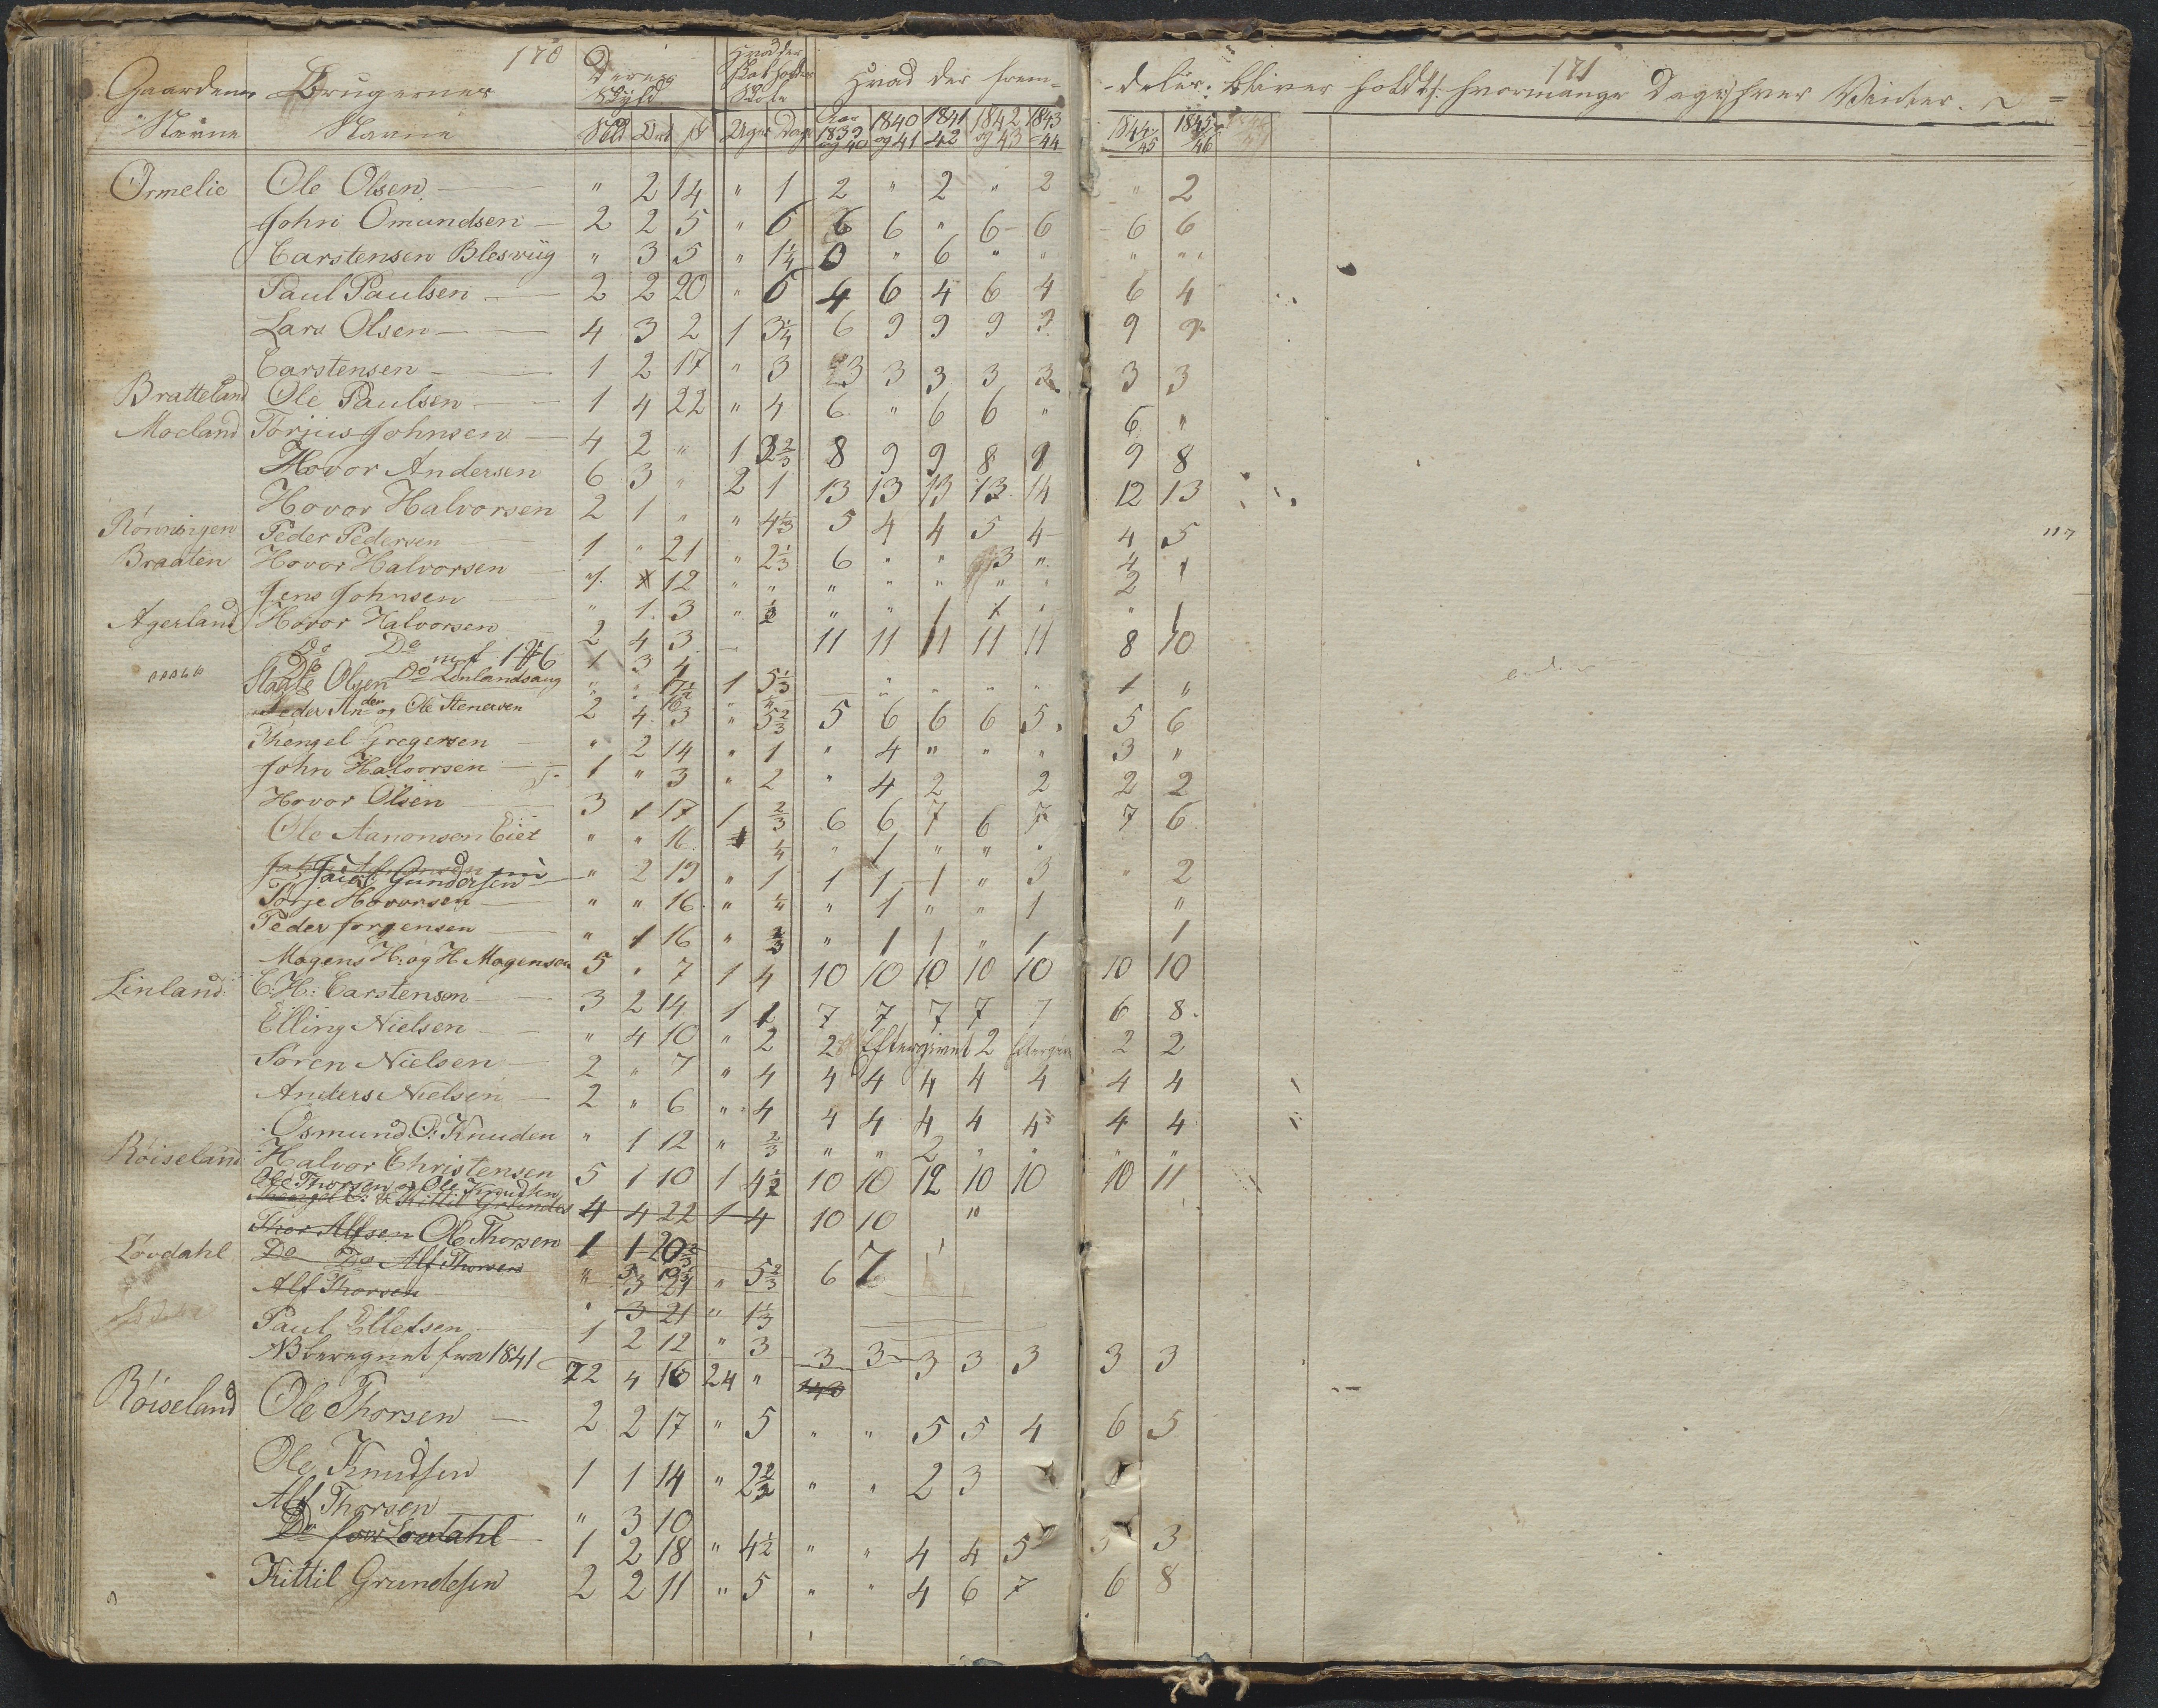 170
171
Gaardens Brugernes Deres Hvad der Hvad der frem-
Navne Navne Skyld Skole
Sbd Ort ß Uger Dage Aar 1839 og 40 1840 og 41 1841 -42 1842 og 43 1843 -44
-deles bliver holdt: hvormange Dage hver Vinter.
1844/45 1845/46
Ormelie Ole Olsen " 2 14 " 1 2 " 2 " 2 " 2
John Omundsen 2 2 5 " 6 6 6 " 6 6 6 6
Carstensen Blesviig " 3 5 " 1¼ 0 " 6 " " " "
Paul Paulsen 2 2 20 " 6 4 6 4 6 4 6 4
Lars Olsen 4 3 2 1 3¼ 6 9 9 9 9 9 9
Carstensen 1 2 17 " 3 3 3 3 3 3 3 3
Bratteland Ole Paulsen 1 4 22 " 4 6 " 6 6 " 6 "
Moeland Torjus Johnsen 4 2 " 1 2⅔ 8 9 9 8 9 9 8
Hovor Andersen 6 3 " 2 1 13 13 13 13 14 12 13
Hovor Halvorsen 2 1 " " 4⅓ 5 4 4 5 4 4 5
Rönningen Peder Pedersen 1 " 21 " 2⅓ 6 " " 3 " 4 1
Braaten Hovor Halvorsen 12 " " " " " " " 2
Jens Johnsen " 1 3 " ½ " " 1 1 " " 1
Agerland Hovor Halvorsen 2 4 3 11 11 11 11 11 8 10
Do Do 1 3 4
Do Do Linlandsaug
Olsen " " 1 5⅓ " " " " 1 "
Peder An og Ole Stenersen 2 4 3 " 5⅔ 5 6 6 6 5 5 6
Thengel Gregersen " 2 14 " 1 " 4 " " " 3 "
John Halvorsen 1 " 3 " 2 " 4 2 2 2 2
Hovor Olsen 3 1 17 1 ⅔ 6 6 7 6 7 7 6
Ole Aanonsen Eiet " " 16 ¼ " 1 " " "
Jacob Gundersen " 2 19 " 1 1 1 1 " 3 " 2
Torje Hovorsen " " 16 " ¼ " 1 " " 1 "
Peder Jorgensen " 1 16 " ⅔ " 1 1 " 1 1
Mogens H: og H Mogensen 5 " 7 1 4 10 10 10 10 10 10 10
Linland C: H: Carstensen 3 2 14 1 1 7 7 7 7 7 6 8
Elling Nielsen " 4 10 " 2 2 Eftergivet 2 2 2
Soren Nielsen 2 " 7 " 4 4 4 4 4 4 4 4
Anders Nielsen 2 " 6 " 4 4 4 4 4 4 4 4
Osmund O: Knuden " 1 12 " ⅔ " " 2 " " " "
Röiseland Halvor Christensen 5 1 10 1 4½ 10 10 12 10 10 10 11
Ole Thorsen og Ole Knudsen
Thengel O: & Kittil Grundes 4 4 22 1 4 10 10 "
Thor Alfsen Ole Thorsen 1 1 20⅔
Lövdahl Do Do Alf Thorsen " 3 " 5⅔ 6 7
Alf Thorsen " 3 21 " 1⅓
Paul Elletsen 1 2 12 " 3 3 3 3 3 3 3 3
NB beregnet fra 1841 72 4 16 24 "
Röiseland Ole Thorsen 2 2 17 " 5 " " 5 5 4 6 5
Ole Knudsen 1 1 14 " 2⅔ " " 2 3
Alf Thorsen " 3 10
Do for Lovdahl 1 2 18 " 4½ " " 4 4 5 3
Kittil Grundesen 2 2 11 " 5 " " 4 6 7 6 8